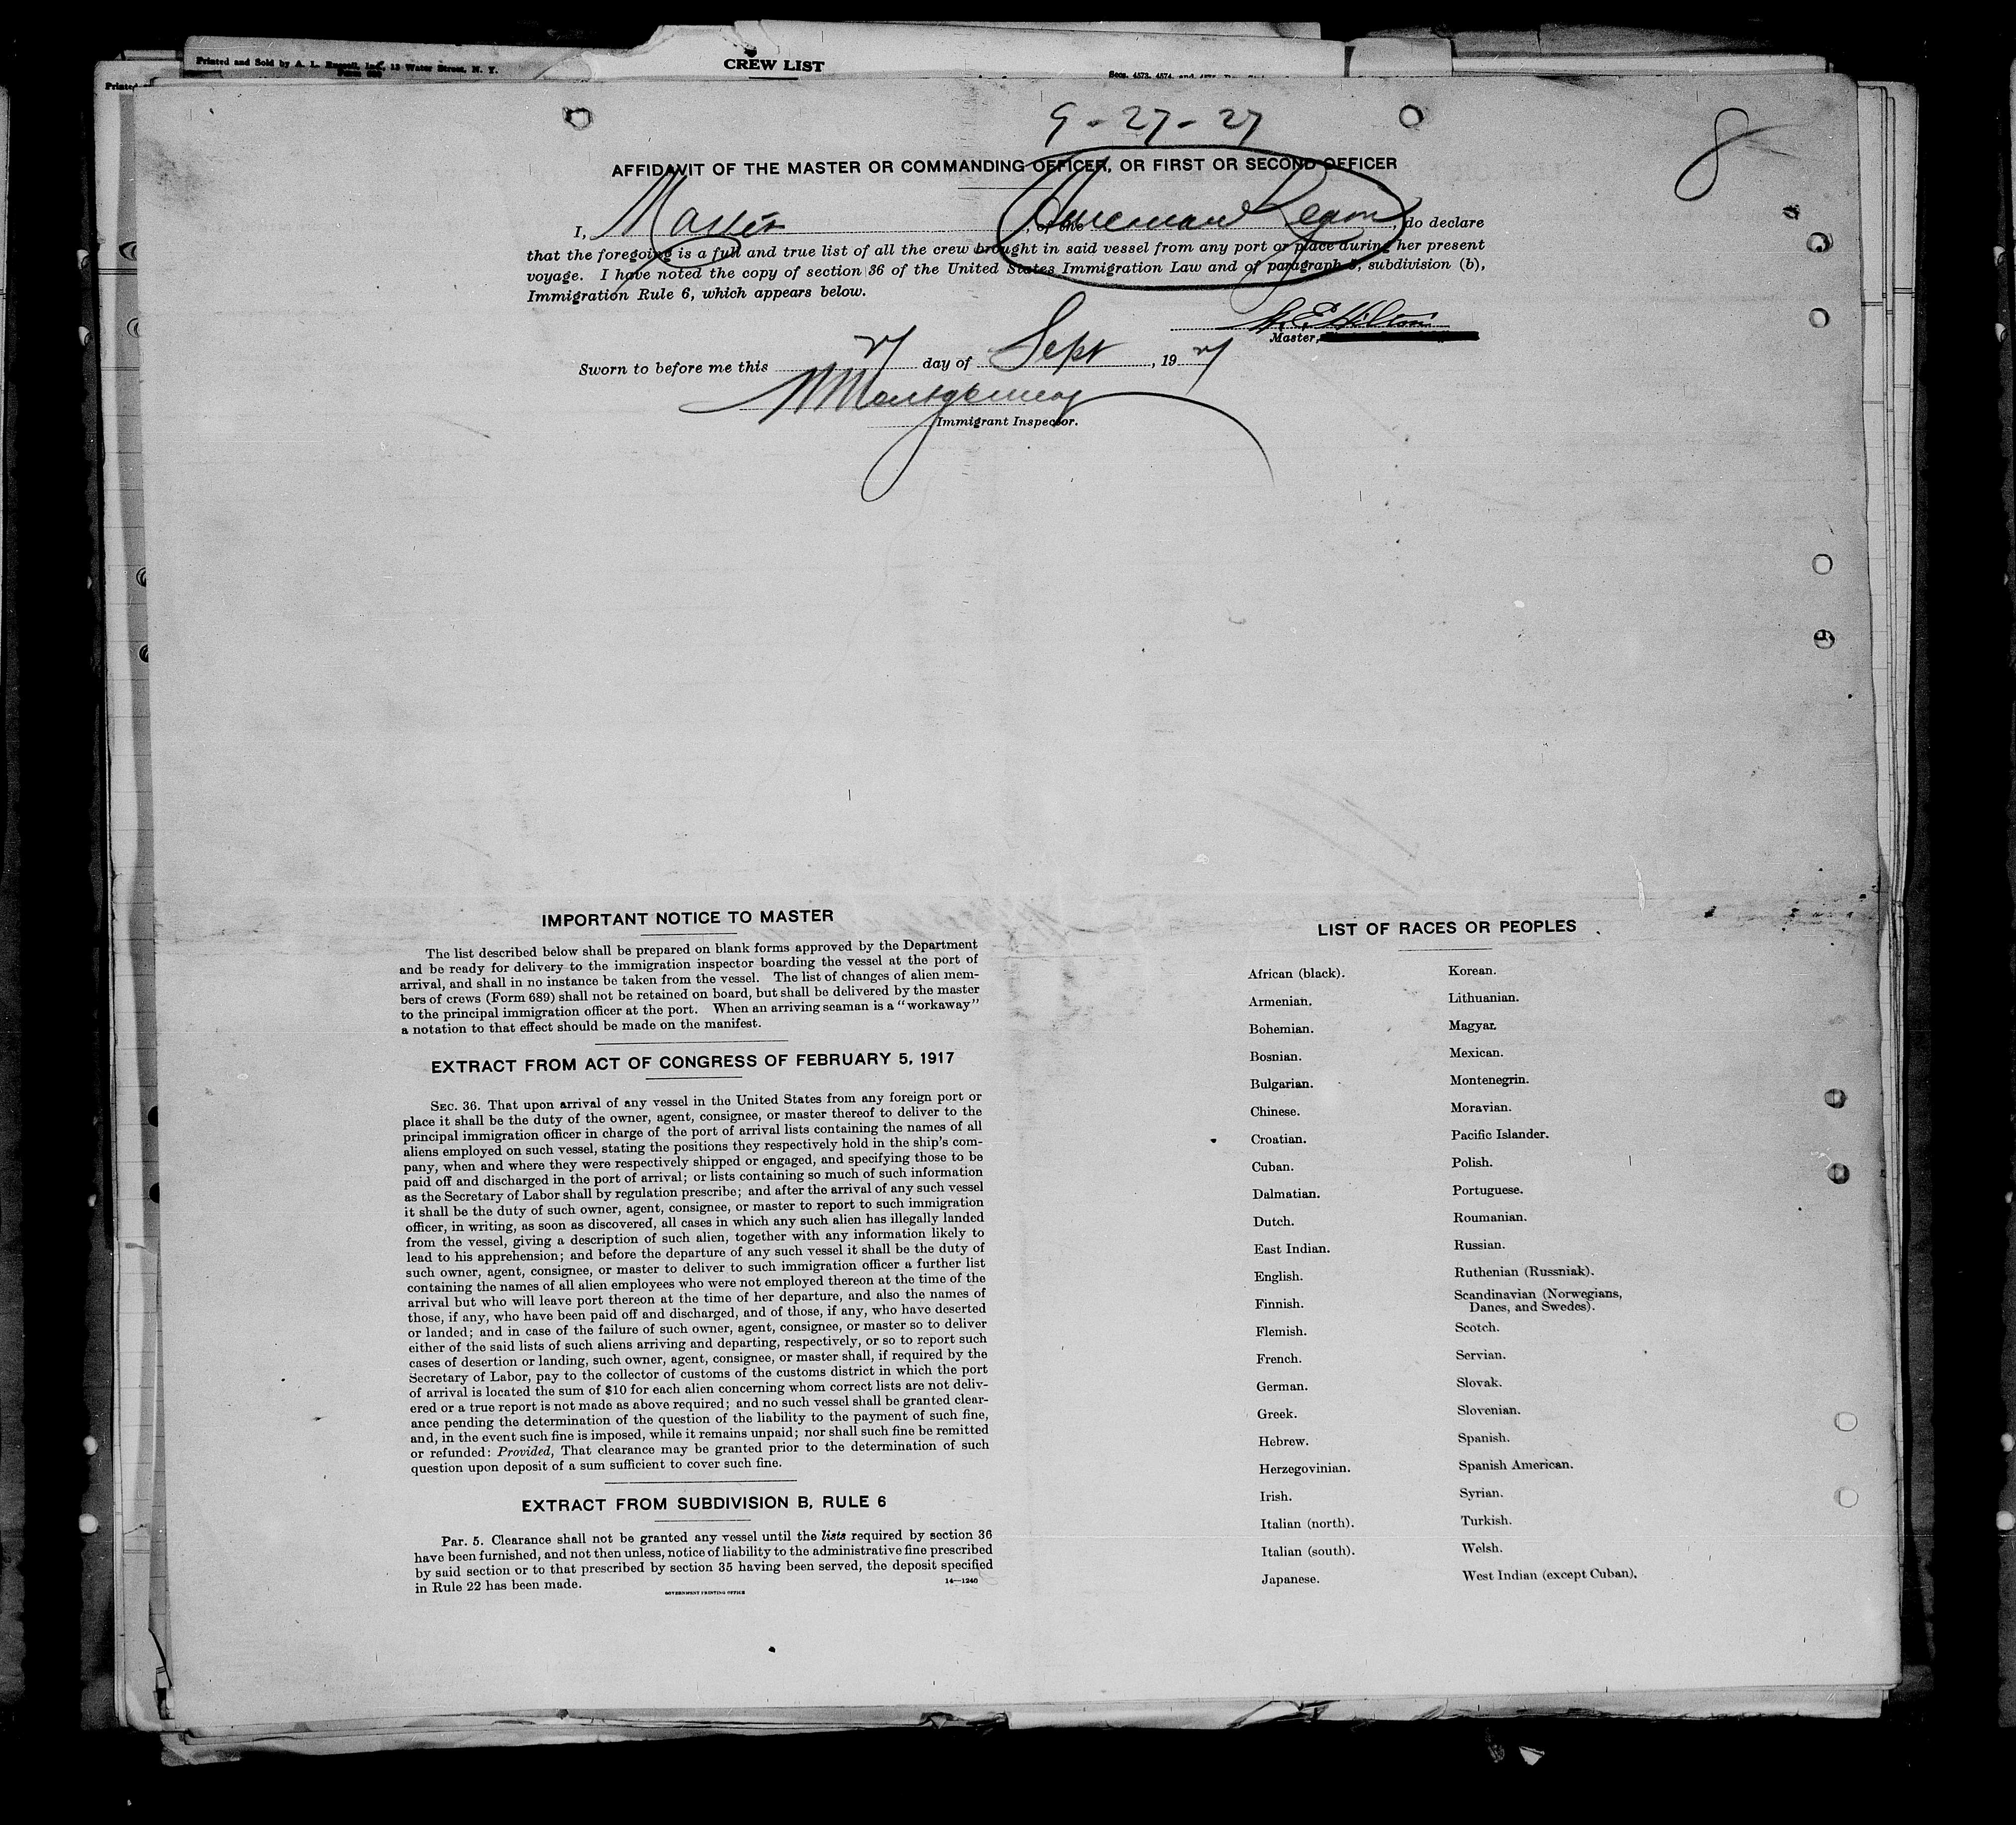 Printed and Sold by A. L. Russell, Inc., 13 Water Street, N. Y.
CREW LIST
Printed
9-27-27
8
AFFIDAVIT OF THE MASTER OR COMMANDING OFFICER, OR FIRST OR SECOND OFFICER
I, Master, of the American Legion, do declare
that the foregoing is a full and true list of all the crew brought in said vessel from any port or place during her present
voyage. I have noted the copy of section 36 of the United States Immigration Law and of paragraph 5, subdivision (b),
Immigration Rule 6, which appears below.
Master,
Sworn to before me this 27 day of Sept, 1927
Montgomery
Immigrant Inspector.
IMPORTANT NOTICE TO MASTER
The list described below shall be prepared on blank forms approved by the Department
and be ready for delivery to the immigration inspector boarding the vessel at the port of
arrival, and shall in no instance be taken from the vessel. The list of changes of alien mem-
bers of crews (Form 689) shall not be retained on board, but shall be delivered by the master
to the principal immigration officer at the port. When an arriving seaman is a "workaway"
a notation to that effect should be made on the manifest.
EXTRACT FROM ACT OF CONGRESS OF FEBRUARY 5, 1917
SEC. 36. That upon arrival of any vessel in the United States from any foreign port or
place it shall be the duty of the owner, agent, consignee, or master thereof to deliver to the
principal immigration officer in charge of the port of arrival lists containing the names of all
aliens employed on such vessel, stating the positions they respectively hold in the ship's com-
pany, when and where they were respectively shipped or engaged, and specifying those to be
paid off and discharged in the port of arrival; or lists containing so much of such information
as the Secretary of Labor shall by regulation prescribe; and after the arrival of any such vessel
it shall be the duty of such owner, agent, consignee, or master to report to such immigration
officer, in writing, as soon as discovered, all cases in which any such alien has illegally landed
from the vessel, giving a description of such alien, together with any information likely to
lead to his apprehension; and before the departure of any such vessel it shall be the duty of
such owner, agent, consignee, or master to deliver to such immigration officer a further list
containing the names of all alien employees who were not employed thereon at the time of the
arrival but who will leave port thereon at the time of her departure, and also the names of
those, if any, who have been paid off and discharged, and of those, if any, who have deserted
or landed; and in case of the failure of such owner, agent, consignee, or master so to deliver
either of the said lists of such aliens arriving and departing, respectively, or so to report such
cases of desertion or landing, such owner, agent, consignee, or master shall, if required by the
Secretary of Labor, pay to the collector of customs of the customs district in which the port
of arrival is located the sum of $10 for each alien concerning whom correct lists are not deliv-
ered or a true report is not made as above required; and no such vessel shall be granted clear-
ance pending the determination of the question of the liability to the payment of such fine,
and, in the event such fine is imposed, while it remains unpaid; nor shall such fine be remitted
or refunded: Provided, That clearance may be granted prior to the determination of such
question upon deposit of a sum sufficient to cover such fine.
EXTRACT FROM SUBDIVISION B, RULE 6
Par. 5. Clearance shall not be granted any vessel until the lists required by section 36
have been furnished, and not then unless, notice of liability to the administrative fine prescribed
by said section or to that prescribed by section 35 having been served, the deposit specified
in Rule 22 has been made.
GOVERNMENT PRINTING OFFICE
14—1240
LIST OF RACES OR PEOPLES
African (black).
Armenian.
Bohemian.
Bosnian.
Bulgarian.
Chinese.
Croatian.
Cuban.
Dalmatian.
Dutch.
East Indian.
English.
Finnish.
Flemish.
French.
German.
Greek.
Hebrew.
Herzegovinian.
Irish.
Italian (north).
Italian (south).
Japanese.
Korean.
Lithuanian.
Magyar.
Mexican.
Montenegrin.
Moravian.
Pacific Islander.
Polish.
Portuguese.
Roumanian.
Russian.
Ruthenian (Russniak).
Scandinavian (Norwegians,
Danes, and Swedes).
Scotch.
Servian.
Slovak.
Slovenian.
Spanish.
Spanish American.
Syrian.
Turkish.
Welsh.
West Indian (except Cuban).